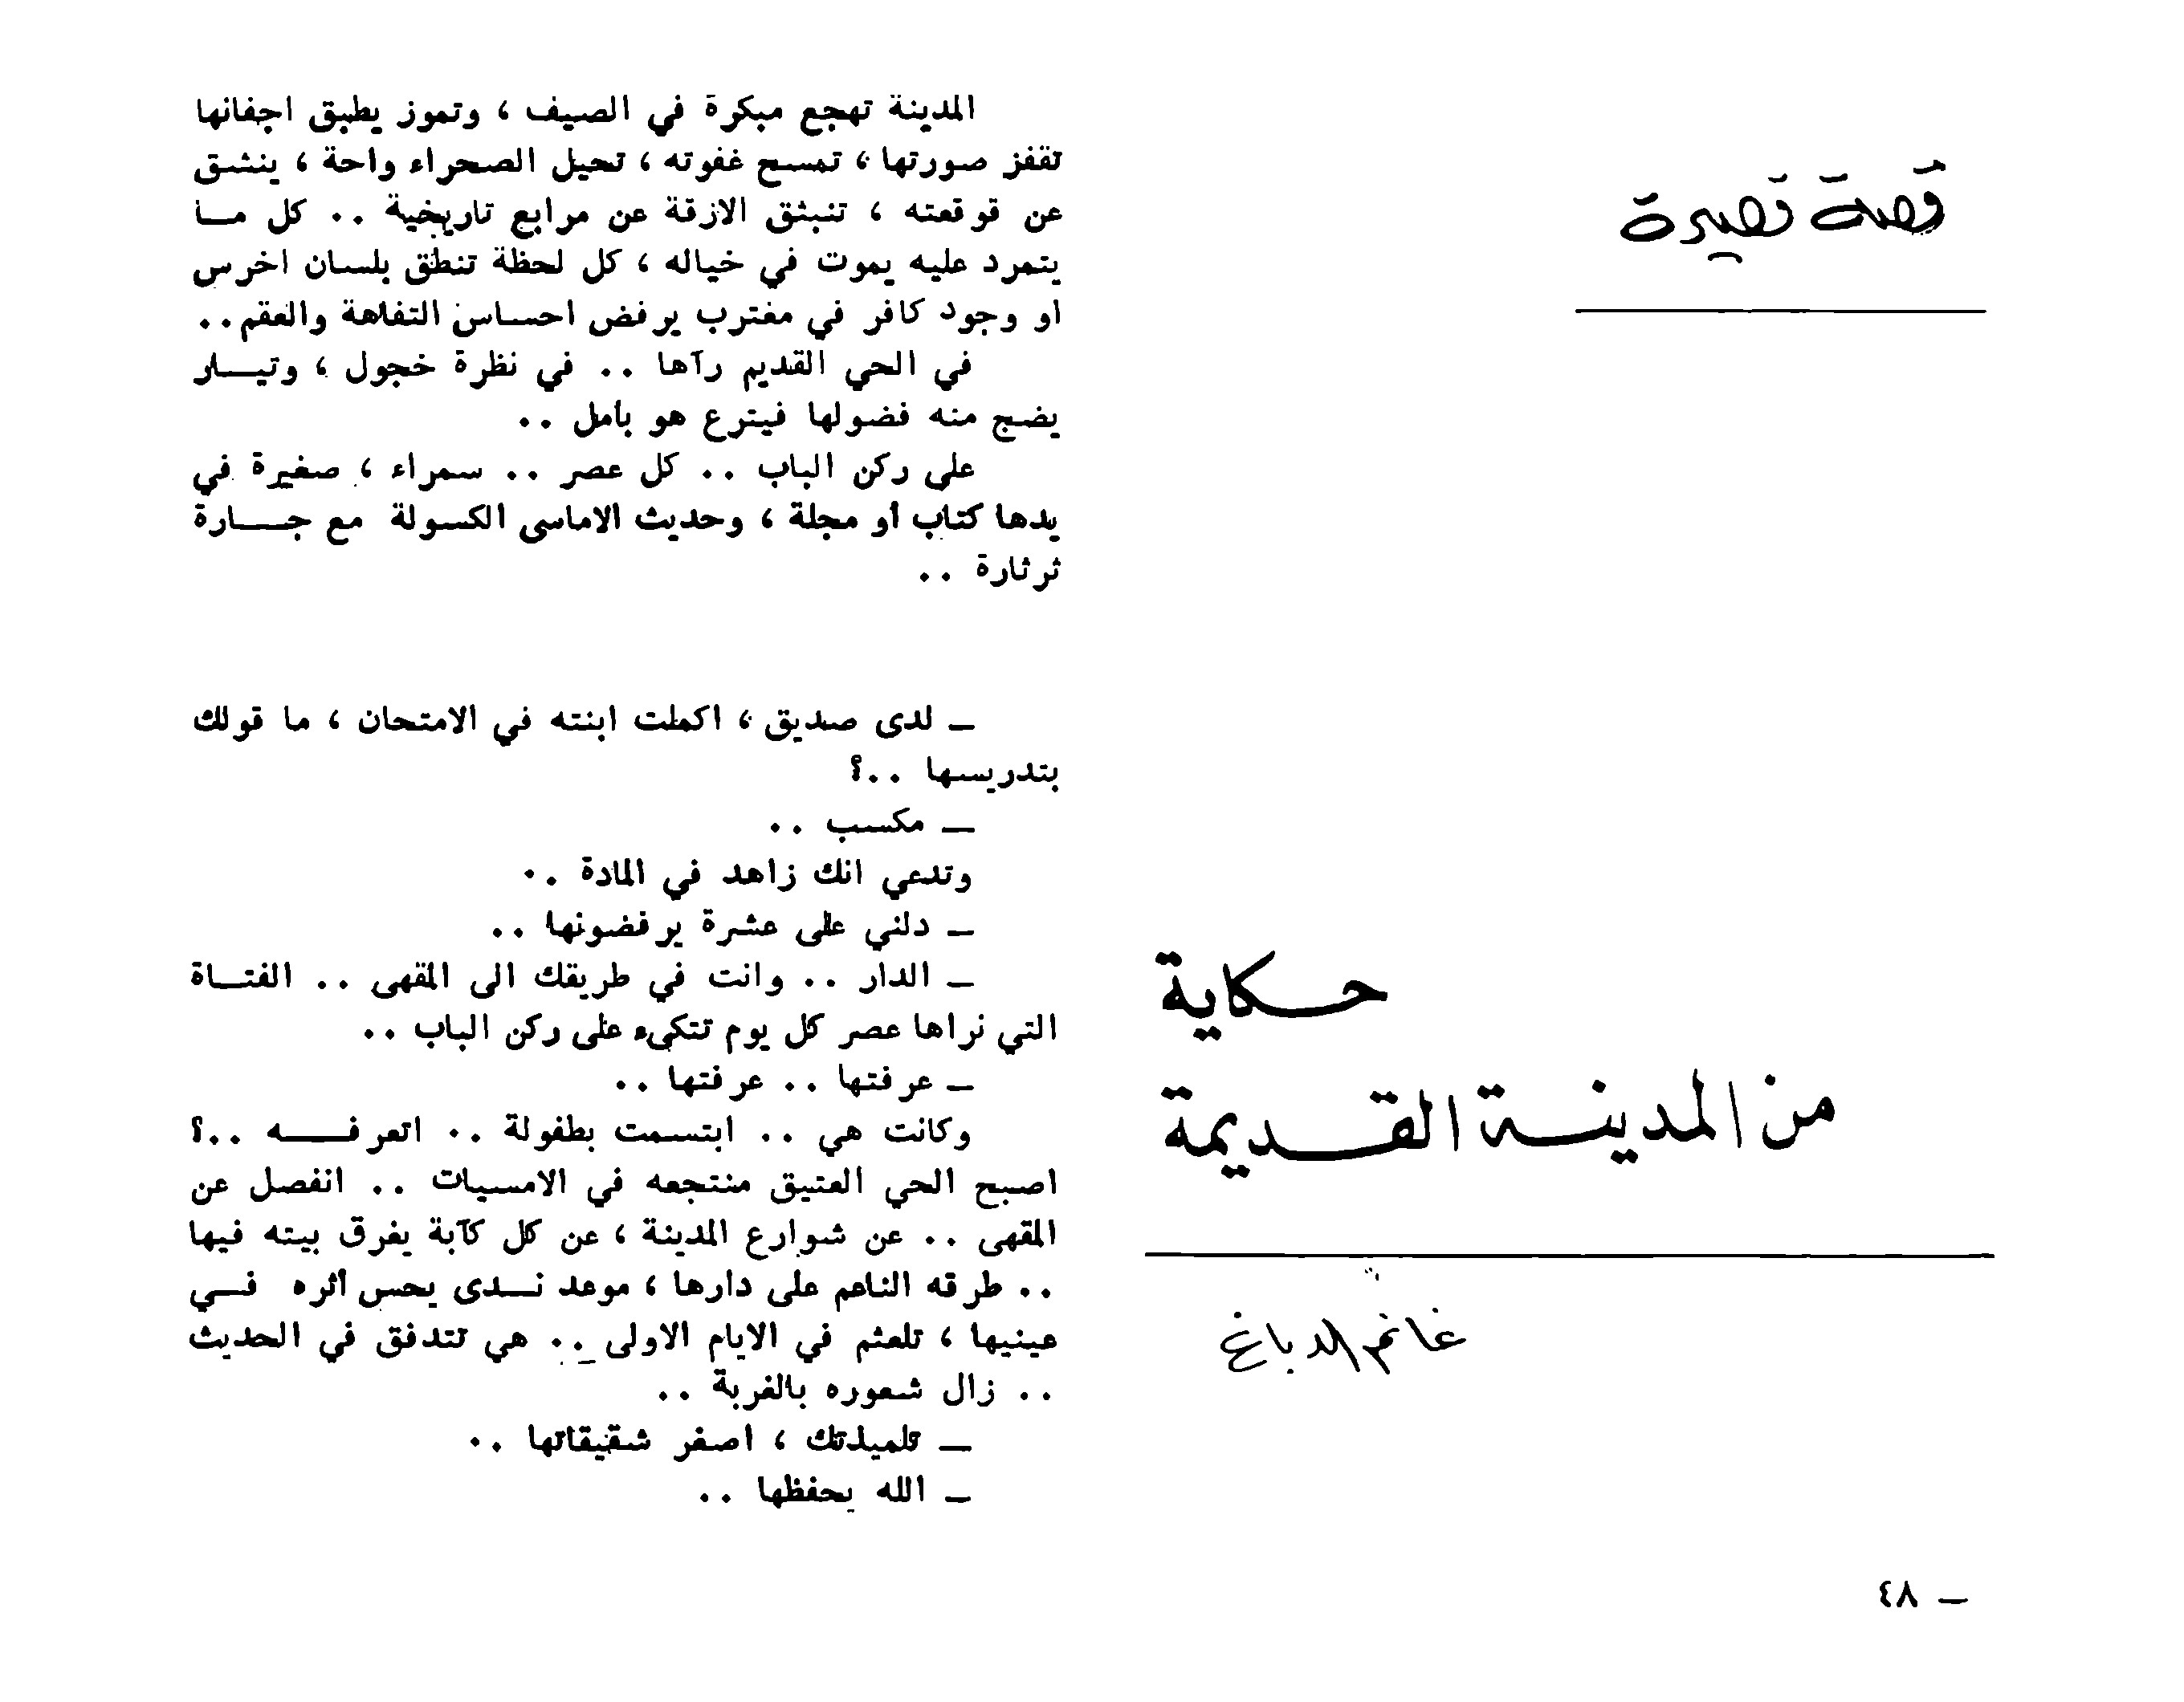 قصة قصيرة
حكاية
من المدينة القديمة
غانم الدباغ
المدينة تهجع مبكرة في الصيف ، وتموز يطبق اجفانها
تقفز صورتها ، تمسح غفوته ، تحيل الصحراء واحة ، ينشق
عن قوقعته ، تنبثق الازقة عن مرابع تاريخية .. كل ما
يتمرد عليه يموت في خياله ، كل لحظة تنطق بلسان اخرس
او وجود كافر في مغترب يرفض احساس التفاهة والعقم..
في الحي القديم رآها .. في نظرة خجول ، وتيار
يضج منه فضولها فيترع هو بامل ..
على ركن الباب .. كل عصر .. سمراء ، صغيرة في
يدها كتاب أو مجلة ، وحديث الاماسى الكسولة مع جارة
ثرثارة ..
ـ لدى صديق ، اكملت ابنته في الامتحان ، ما قولك
بتدريسها ..؟
ـ مكسب ..
وتدعي انك زاهد في المادة ..
ـ دلني على عشرة يرفضونها ..
ـ الدار .. وانت في طريقك الى المقهى .. الفتاة
التي نراها عصر كل يوم تتكىء على ركن الباب ..
ـ عرفتها .. عرفتها ..
وكانت هي .. ابتسمت بطفولة .. اتعرفه ..؟
اصبح الحي العتيق منتجعه في الامسيات .. انفصل عن
المقهى .. عن شوارع المدينة ، عن كل كآبة يغرق بيته فيها
.. طرقه الناعم على دارها ، موعد ندى يحس أثره في
عينيها ، تلعثم في الايام الاولى .. هي تتدفق في الحديث
.. زال شعوره بالغربة ..
ـ تلميذتك ، اصغر شقيقاتها ..
ـ الله يحفظها ..
٤٨ ـ